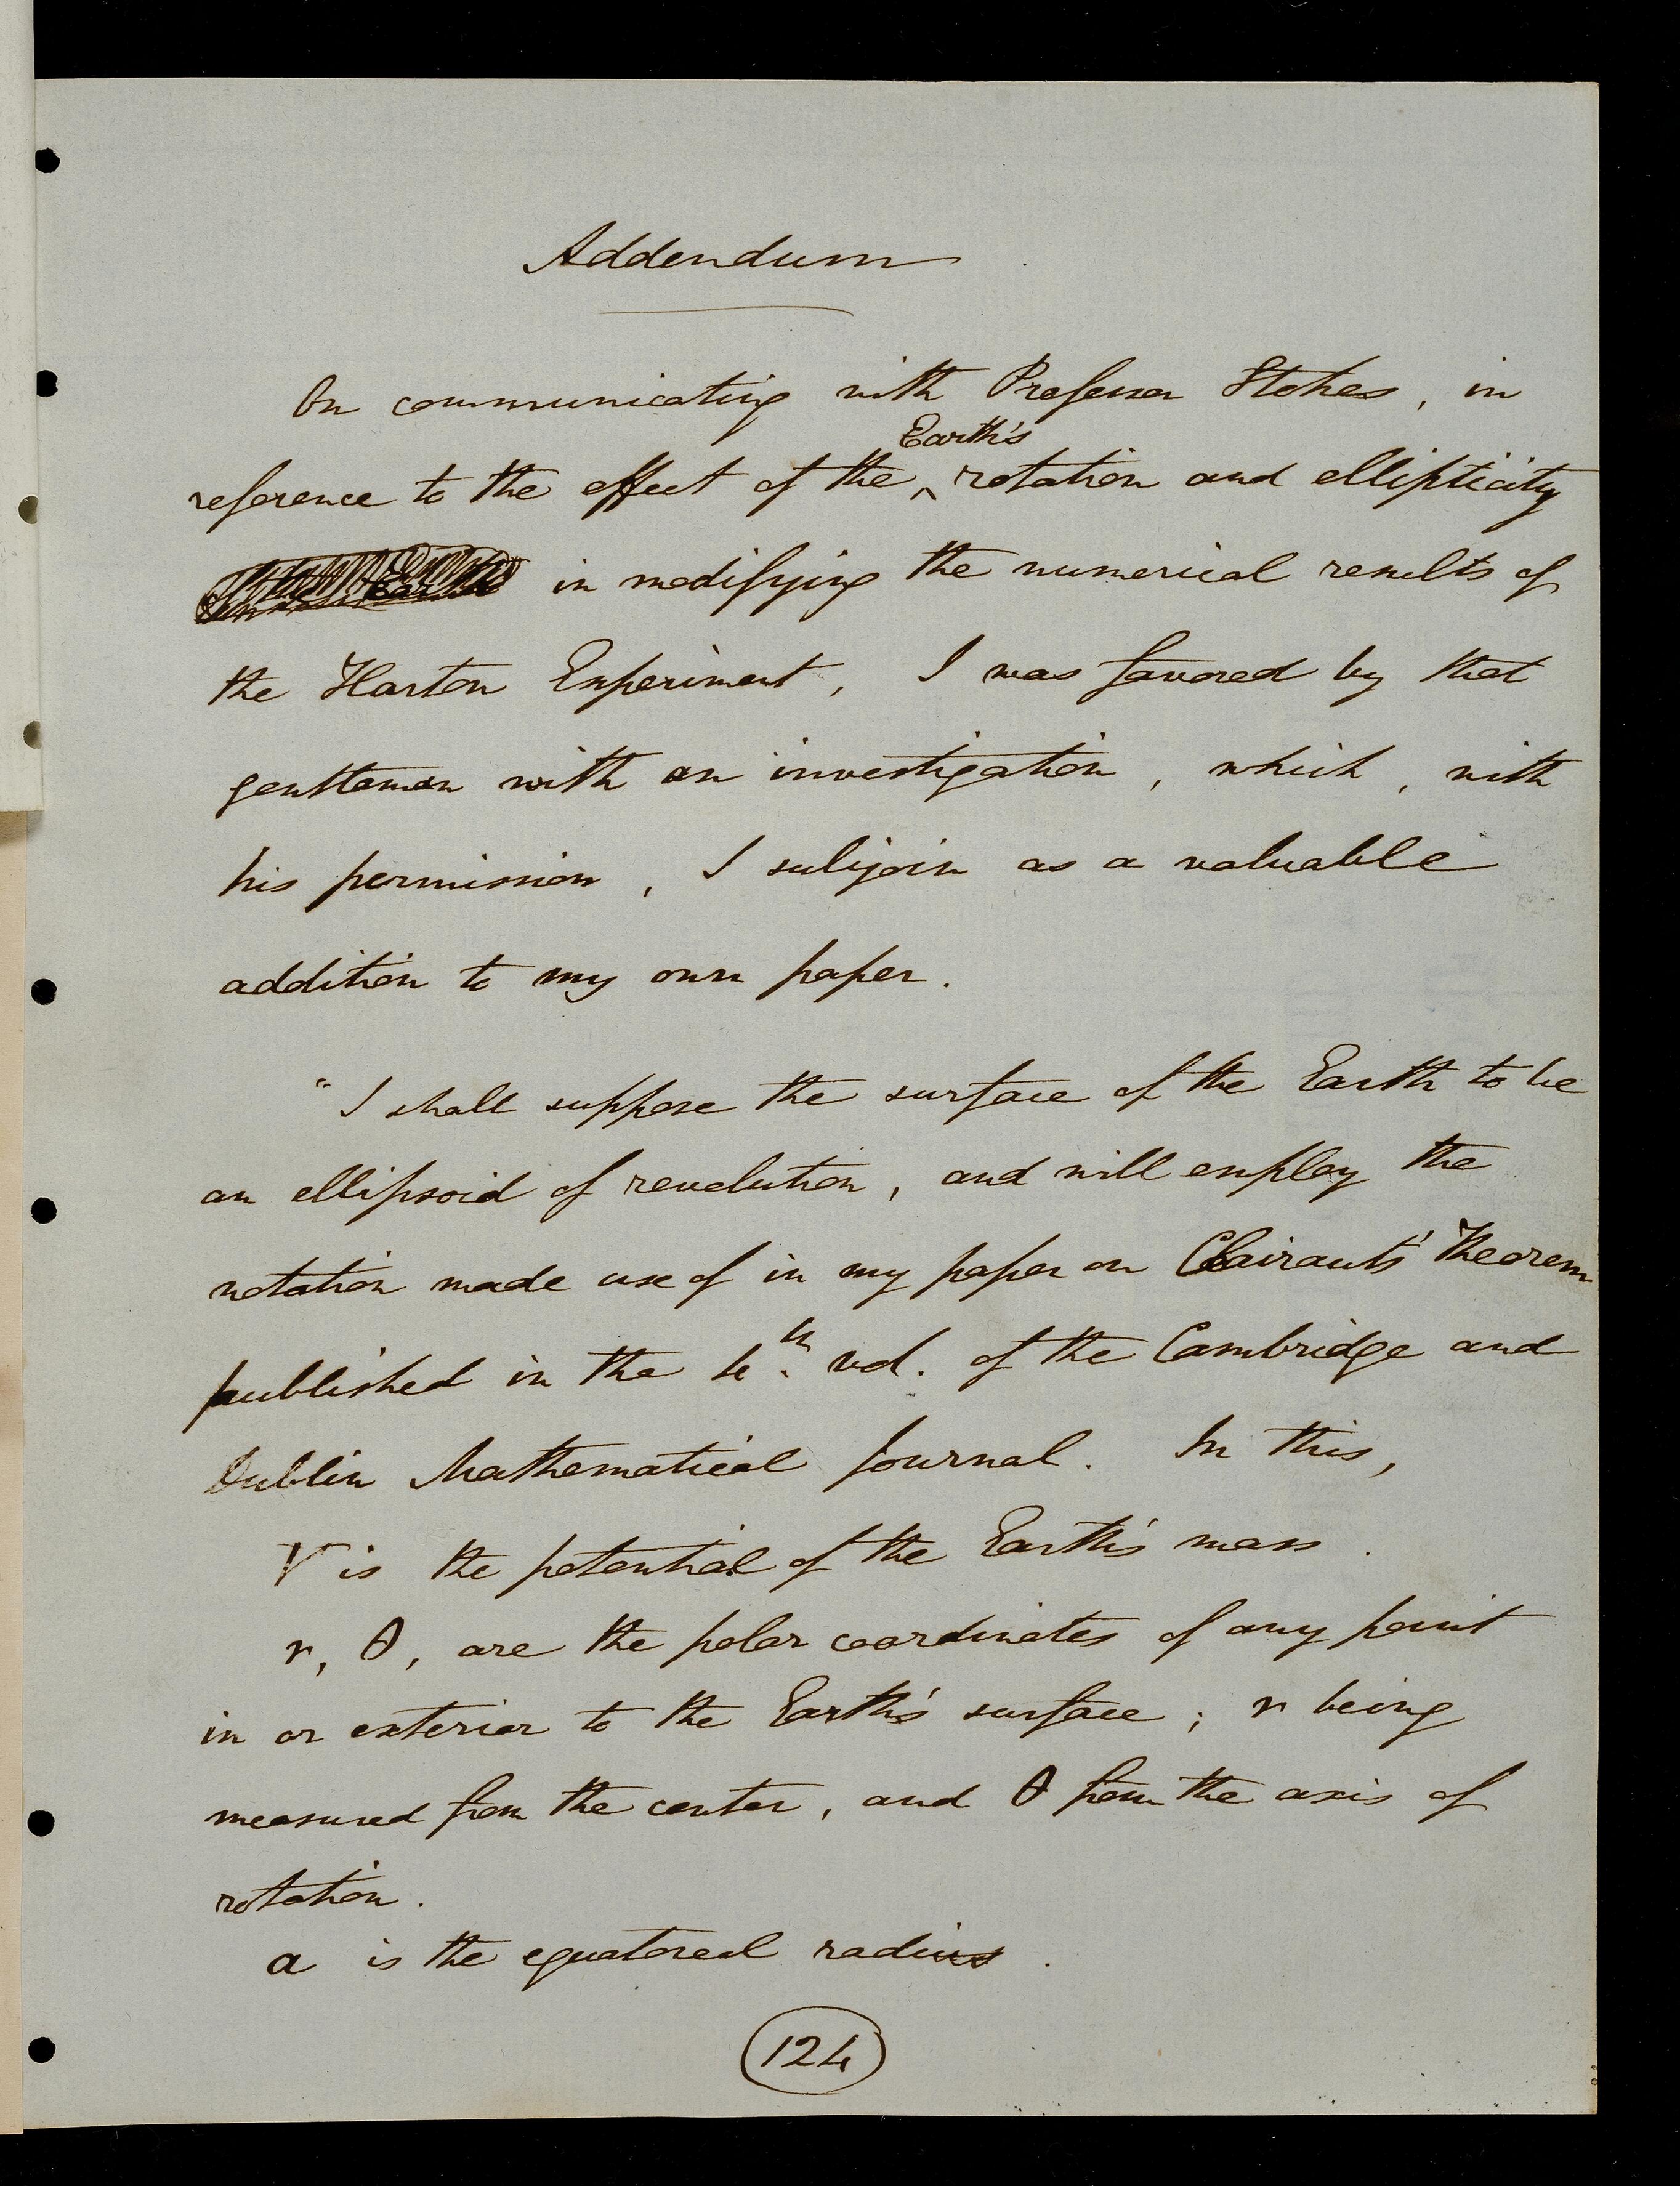 Addendum
On communicating with Professor Stokes, in
Earth's
reference to the effect of the ‸ rotation and ellipticity
in modifying the numerical results of
the Harton Experiment, I was favored by that
gentleman with an investigation, which, with
his permission, I subjoin as a valuable
addition to my own paper.
"I shall suppose the surface of the Earth to be
an ellipsoid of revolution, and will employ the
notation made use of in my paper on Clairaut's Theorem
published in the 4th. vol. of the Cambridge and
Dublin Mathematical Journal. In this,
V is the potential of the Earth's mass.
r, θ, are the polar coordinates of any point
in or exterior to the Earth's surface; r being
measured from the center, and θ from the axis of
rotation.
a is the equatoreal radius.
124